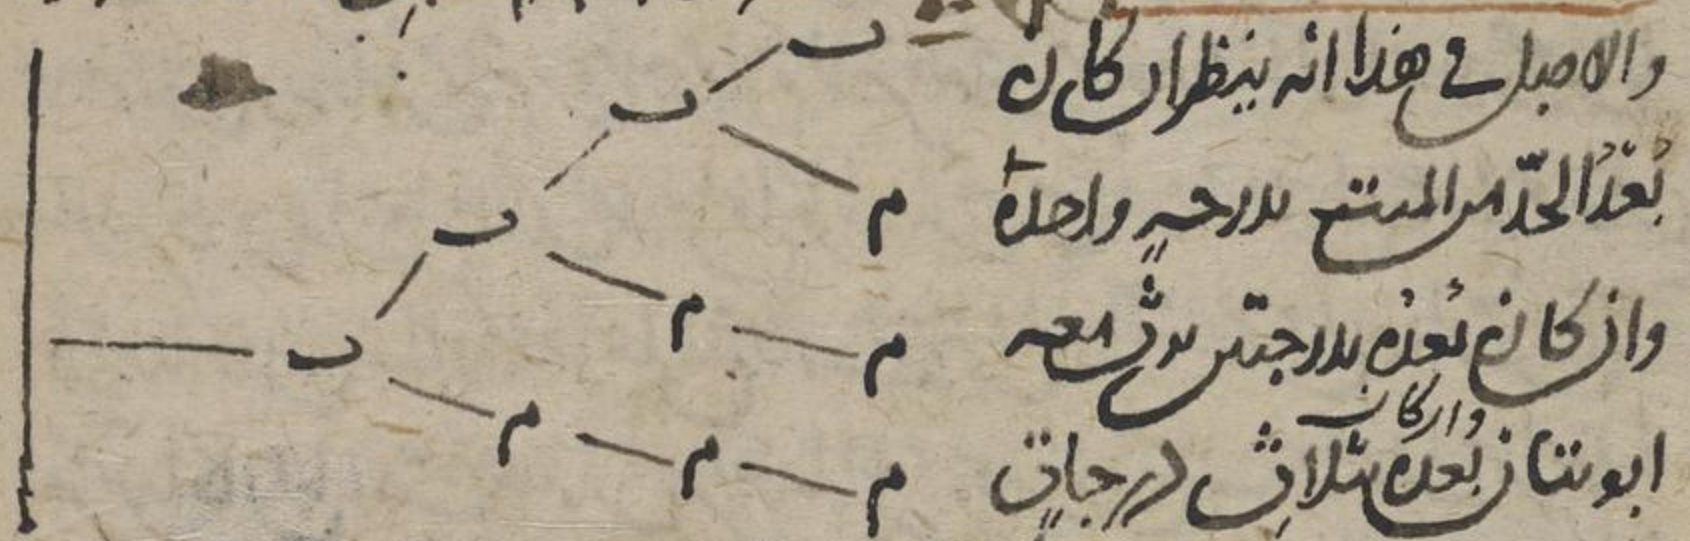 والاصل في هذا انه ينظر ان كان
بُعْدُ الجدّ من الميت بدرجةٍ واحدة
وان كان بُعدُه بدرجتين يرث معه
وان كان
ابوبتان بُعده بثلاث درجات
ب
ب م
ب م م
ب م م م